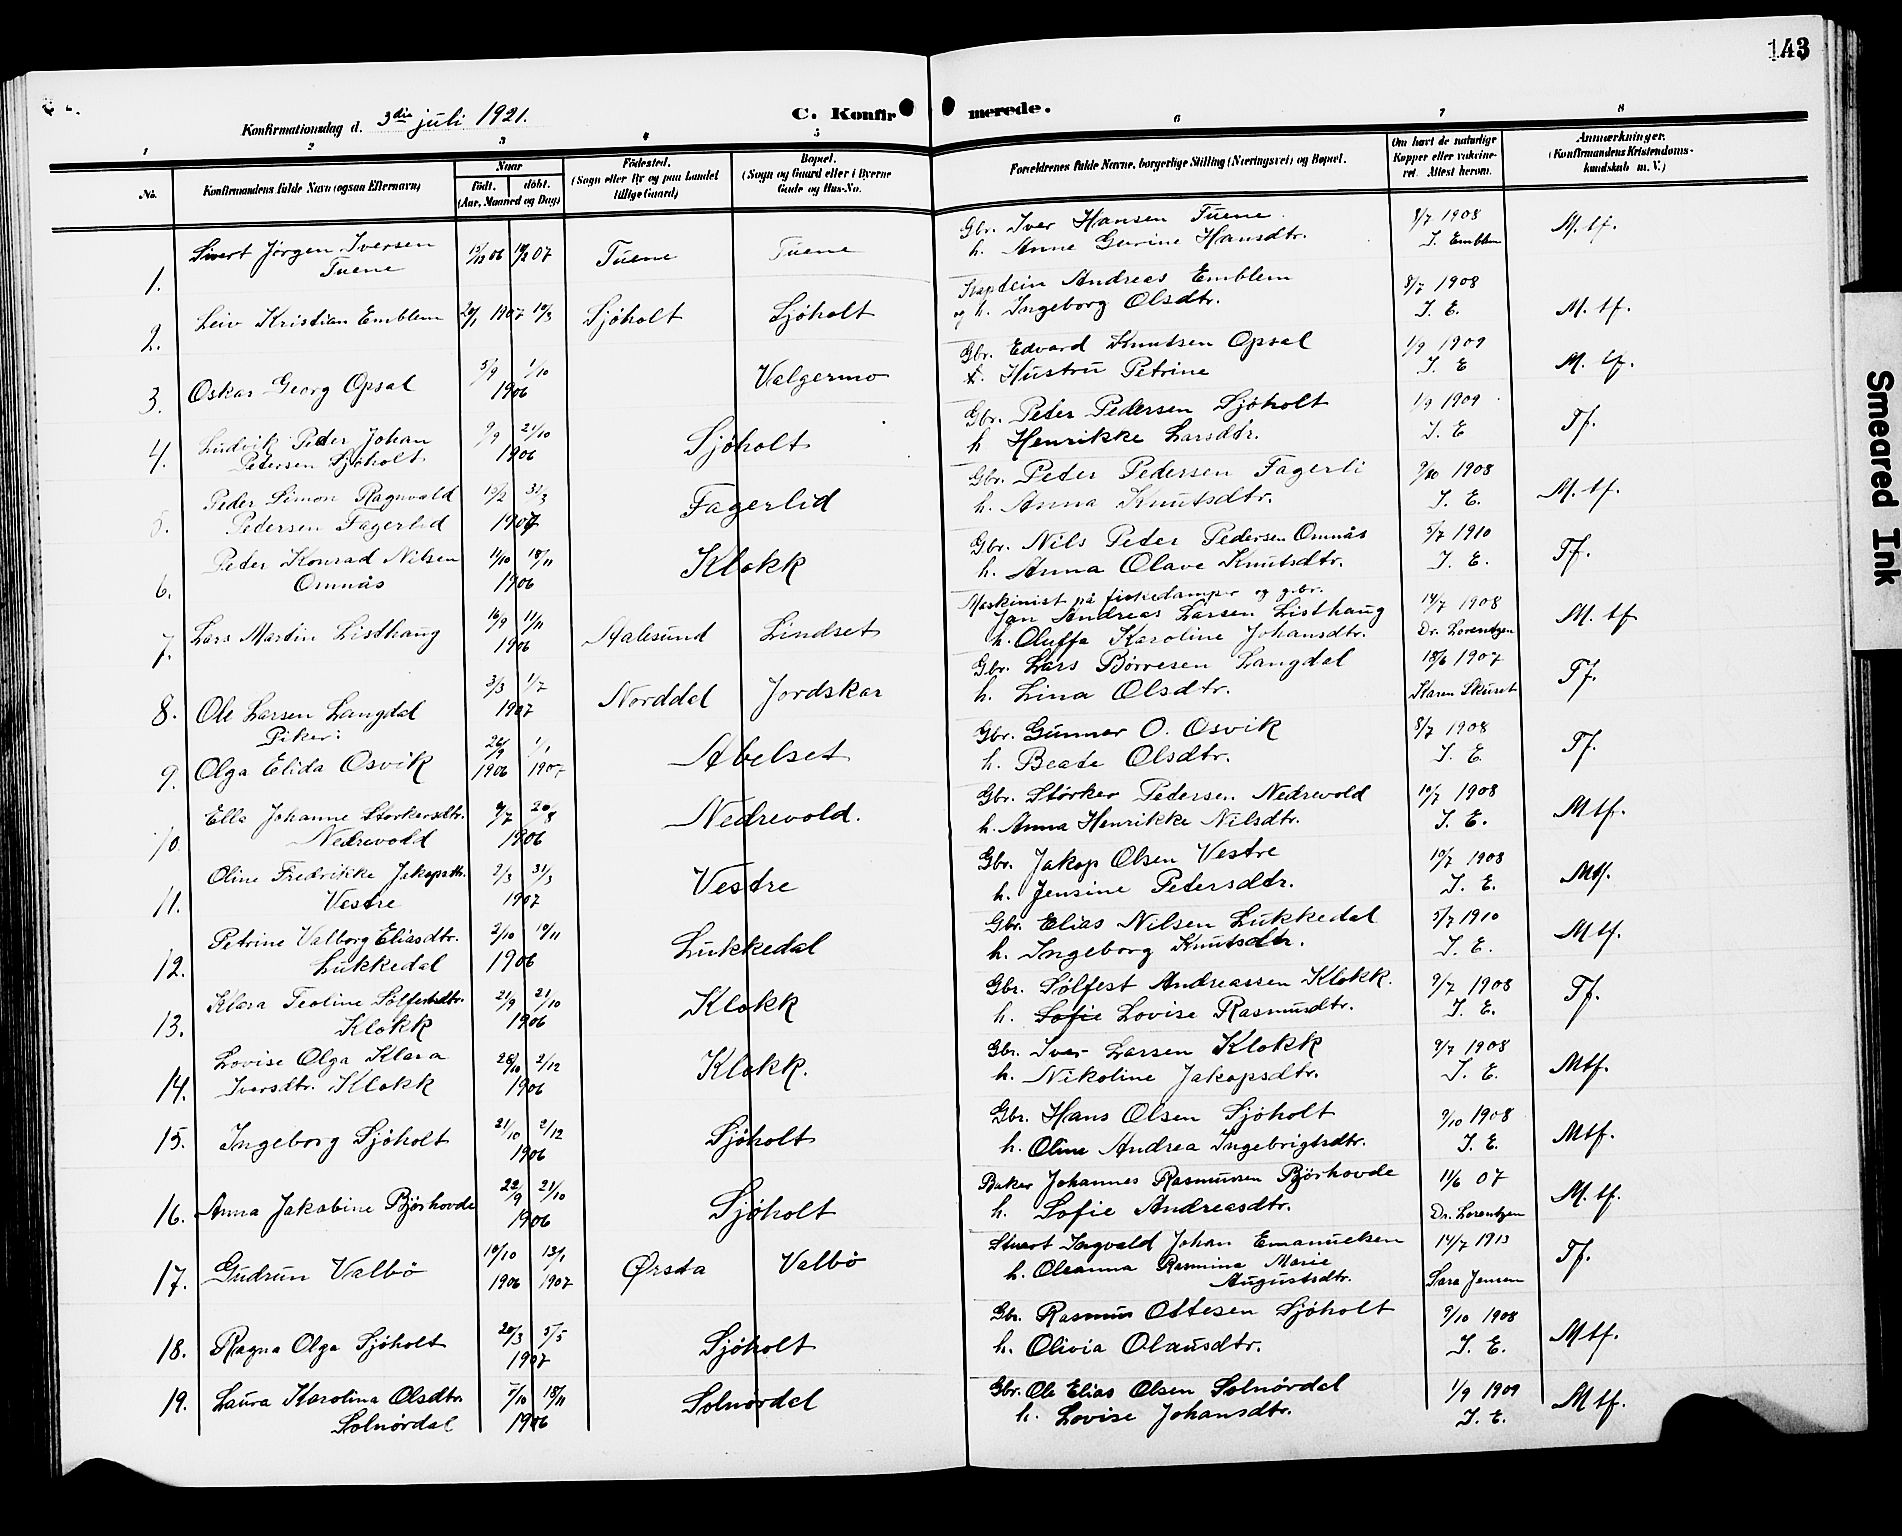 143
Konfirmationsdag d. 3die juli 1921.
C. Konfir merede.
1 2 3 4 5 6 7 8
No.
Konfirmandens fulde Navn (ogsaa Efternavn)
Naar
født. døbt.
(Aar, Maaned og Dag)
Fødested.
(Sogn eller By og paa Landet
tillige Gaard)
Bopæl.
(Sogn og Gaard eller i Byerne
Gade og Hus-No.
Forældrenes fulde Navne, borgerlige Stilling (Næringsvei) og Bopæl.
Om havt de naturlige
Kopper eller vakcine-
ret. Attest herom.
Anmærkninger.
(Konfirmandens Kristendoms-
kundskab m. V.)
1. Sivert Jørgen Iversen
Tuene
06 07 Tuene Tuene
Gbr. Iver Hansen Tuene.
h. Anne Gurine Hansdtr.
8/7 1908
I. Emblem
M. tf.
2. Leiv Kristian Emblem 1907 Sjøholt Sjøholt
Kaptein Andreas Emblem
og h. Ingeborg Olsdtr.
8/7 1908
I. E.
M. tf.
3. Oskar Georg Opsal 5/9 1/10
1906
Valgermo
Gbr. Edvard Knutsen Opsal
Hustru Petrine
1/9 1909
I. E
M. tf.
4. Ludvik Peder Johan
Petersen Sjøholt.
9/9 21/10
1906
Sjøholt
Gbr. Peter Pedersen Sjøholt
h. Henrikke Larsdtr.
1/9 1909
I. E
Tf.
5. Peder Simon Ragnvald
Pedersen Fagerlid
31/3
1907
Fagerlid
Gbr. Peder Pedersen Fagerli
h. Anna Knutsdtr.
9/10 1908
I. E.
M. tf.
6. Peder Konrad Nilsen
Omnås
11/10 18/11
1906
Klokk
Gbr. Nils Peter Pedersen Omnås
h. Anna Olave Knutsdtr.
5/7 1910
I. E.
Tf.
7. Lars Martin Listhaug
16/9 11/11
1906
Aalesund Lindset
Maskinist på fiskedamper og gbr.
Jan Andreas Larsen Listhaug
h. Oluffa Karoline Johansdtr.
14/7 1908
Dr. Lorentzen
M. tf
8. Ole Larsen Langdal
3/3 1/7
1907
Norddal Jordskar
Gbr. Lars Børresen Langdal
h. Lina Olsdtr.
18/6 1907
Karen Skuset
Tf.
Piker:
9. Olga Elida Osvik
26/9 1/1
1906 1907
Abelset
Gbr. Gunnar O. Osvik
h. Beate Olsdtr.
8/7 1908
I. E.
Tf.
10. Ella Johanne Størkersdtr.
Nedrevold
9/7 20/8
1906
Nedrevold.
Gbr. Størker Pedersen Nedrevold
h. Anna Henrikke Nilsdtr.
10/7 1908
I. E.
Mtf.
11. Oline Fredrikke Jakopsdtr.
Vestre
2/3 31/3
1907
Vestre
Gbr. Jakop Olsen Vestre
h. Jensine Petersdtr.
10/7 1908
I. E.
Mtf.
12. Petrine Valborg Eliasdtr.
Lukkedal
2/10 10/11
1906
Lukkedal
Gbr. Elias Nilsen Lukkedal
h. Ingeborg Knutsdtr.
5/7 1910
I. E.
Mtf.
13. Klara Teoline Sølfestsdtr.
Klokk
21/9 21/10
1906
Klokk
Gbr. Sølfest Andreassen Klokk.
h. Sofie Lovise Rasmusdtr.
9/7 1908
I. E.
Tf.
14. Lovise Olga Klara
Iversdtr. Klokk
26/10 2/12
1906
Klokk.
Gbr. Iver Larsen Klokk
h. Nikoline Jakopsdtr.
9/7 1908
I. E.
Mtf.
15. Ingeborg Sjøholt
21/10 2/12
1906
Sjøholt
Gbr. Hans Olsen Sjøholt
h. Oline Andrea Ingebrigtsdtr.
9/10 1908
I. E.
Mtf.
16. Anna Jakobine Bjørhovde
22/9 21/10
1906
Sjøholt
Baker Johannes Rasmussen Bjørhovde
h. Sofie Andreasdtr.
11/6 07
Dr. Lorentzen
M. tf.
17. Gudrun Valbø
10/10 13/1
1906 1907
Ørsta Valbø
Stuert Ingvald Johan Emanuelsen
h. Oleanna Rasmina Marie
Augustsdtr.
14/7 1913
Sara Jensen
Tf.
18. Ragna Olga Sjøholt
20/3 5/5
1907
Sjøholt
Gbr. Rasmus Ottesen Sjøholt
h. Olivia Olausdtr.
9/10 1908
I. E.
Mtf.
19. Laura Karolina Olsdtr.
Solnørdal
18/11
1906
Solnørdal
Gbr. Ole Elias Olsen Solnørdal
h. Lovise Johansdtr.
1/9 1909
I. E.
Mtf.
Smeared Ink